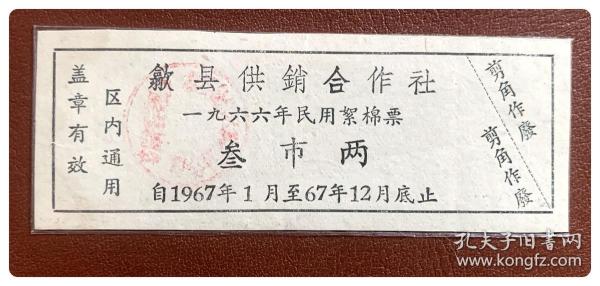 歙县供銷合作社
一九六六年民用絮棉票
叁市两
自1967年1月至67年12月底止
盖章有效
区内通用
剪角作廢
剪角作廢
孔夫子旧书网
www.kongfz.com